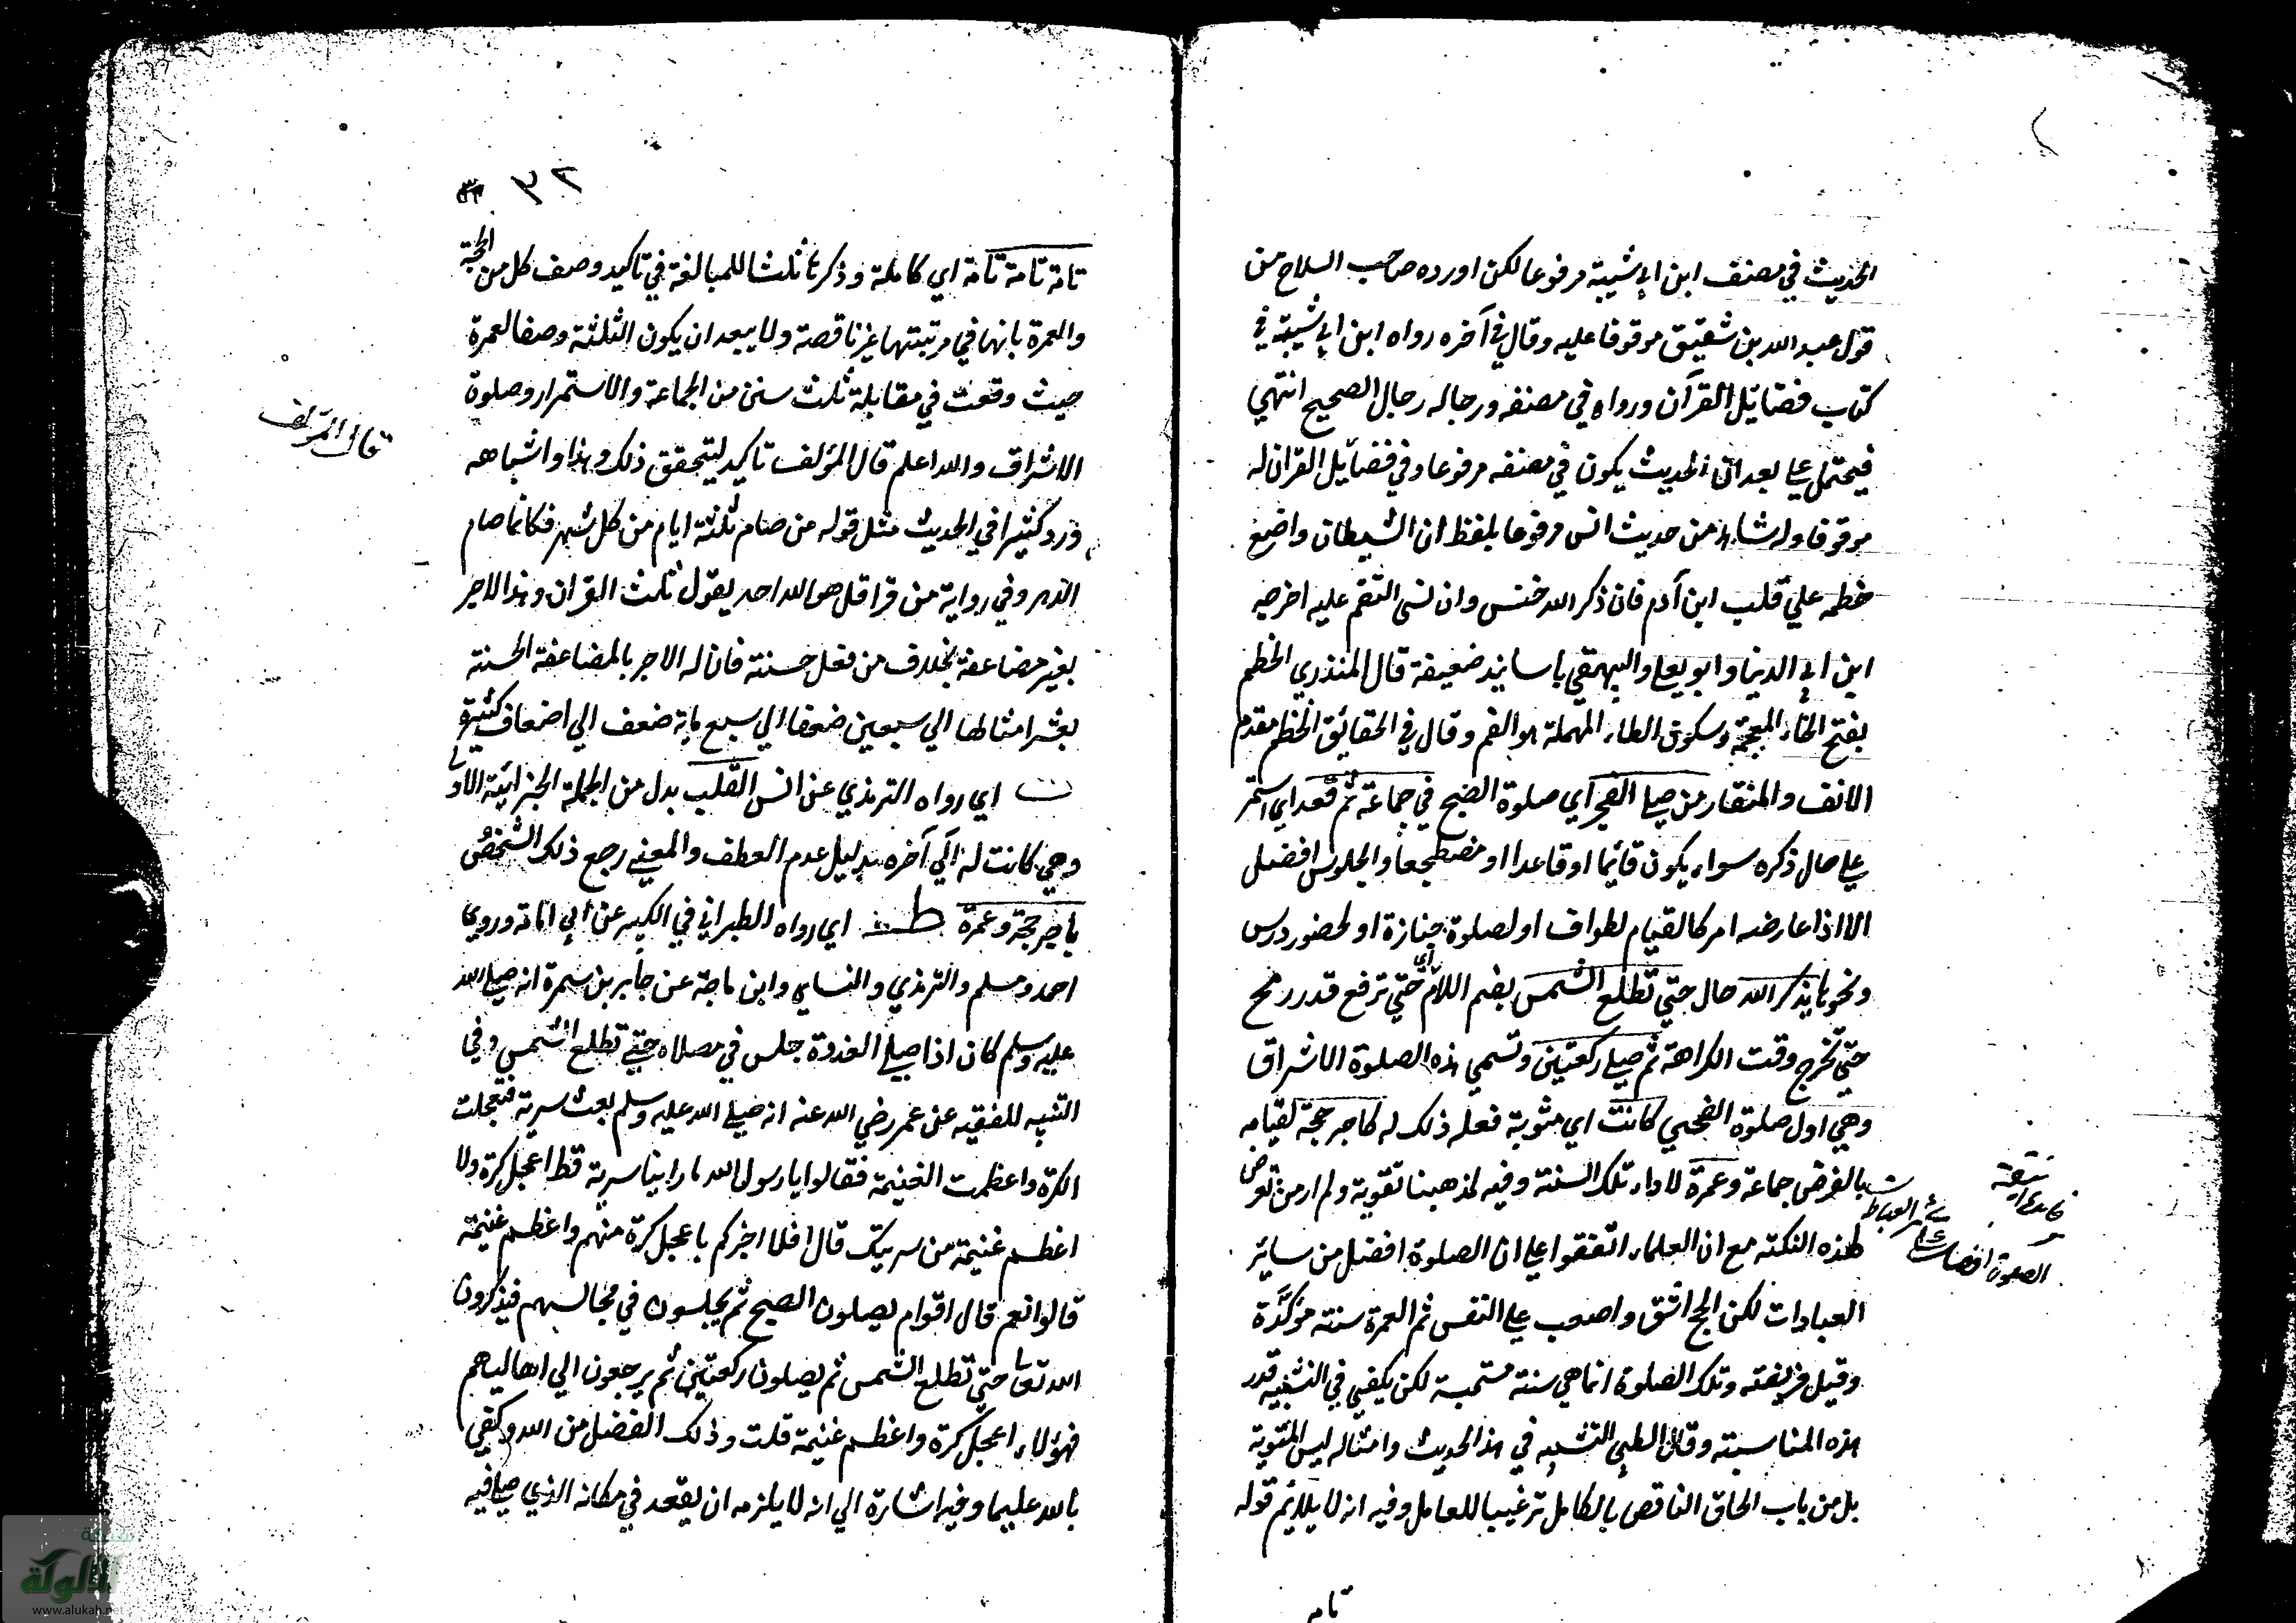 الحديث في مصنف ابن ابي شيبة مرفوعا لكن اورده صاحب السلاح من
قول عبد الله بن شقيق موقوفا عليه وقال في آخره رواه ابن ابي شيبة في
كتاب فضائل القرآن ورواه في مصنفه ورجاله رجال الصحيح انتهي
فيحتمل علي بعد ان الحديث يكون في مصنفه مرفوعا وفي فضائل القران له
موقوفا وله شاهد من حديث انس مرفوعا بلفظ ان الشيطان واضع
خطمه علي قلب ابن آدم فان ذكر الله خنس وان نسى التقم عليه اخرجه
ابن ابي الدنيا وابو يعلي والبيهقي باسانيد ضعيفة قال المنذري الخطم
بفتح الخاء المعجمة وسكون الطاء المهملة هو الفم وقال في الحقائق الخطم مقدم
الانف والمنقار من صلي الفجر اي صلوة الصبح في جماعة ثم قعد اي استمر
علي حال ذكره سواء يكون قائما او قاعدا او مضطجعا والجلوس افضل
الا اذا عارضه امر كالقيام لطواف او لصلوة جنازة او لحضور درس
ونحوها يذكر الله حال حتي تطلع الشمس بضم اللام اي حتي ترفع قدر رمح
حتي تخرج وقت الكراهة ثم صلي ركعتين وتسمي هذه الصلوة الاشراق
وهي اول صلوة الضحي كانت اي مثوبة فعله ذلك له كاجر حجة لقيامه
بالفرض جماعة وعمرة لاداء تلك السنة وفيه لمذهبنا تقوية ولم ار من تعرض
لهذه النكتة مع ان العلماء اتفقوا علي ان الصلوة افضل من سائر
العبادات لكن الحج اشق واصعب علي النفس ثم العمرة سنة مؤكدة
وقيل فريضة وتلك الصلوة انما هي سنة مستحبة لكن يكفي في التشبيه قدر
هذه المناسبة وقال الطيبي التشبيه في هذا الحديث وامثاله ليس للتسوية
بل من باب الحاق الناقص بالكامل ترغيبا للعامل وفيه انه لا يلائم قوله
تامة
الصلوة افضل
٣٢
تامة تامة تامة اي كاملة وذكرها ثلثا للمبالغة في تاكيد وصف كل من الحجة
والعمرة بانها في مرتبتهما غير ناقصة ولا يبعد ان يكون الثلثة وصفا لعمرة
حيث وقعت في مقابلة ثلث سنن من الجماعة والاستمرار وصلوة
الاشراق والله اعلم قال المؤلف تاكيد ليتحقق ذلك وهذا واشباهه
ورد كثيرا في الحديث مثل قوله من صام ثلثة ايام من كل شهر فكانما صام
الدهر وفي رواية من قرا قل هو الله احد يقول ثلث القران وهذا الاجر
بغير مضاعفة بخلاف من فعل حسنة فان له الاجر بالمضاعفة الحسنة
بعشر امثالها الي سبعين ضعفا الي سبع ماية ضعف الي اضعاف كثيرة
ت اي رواه الترمذي عن انس القلب بدل من الجملة الجزائية الاولي
وهي كانت له الي آخره بدليل عدم العطف والمعني رجع ذلك الشخص
باجر حجة وعمرة ط اي رواه الطبراني في الكبير عن ابي امامة وروي
احمد ومسلم والترمذي والنسائي وابن ماجة عن جابر بن سمرة انه صلي الله
عليه وسلم كان اذا صلي الغدوة جلس في مصلاه حتي تطلع الشمس وفي
التنبيه للفقيه عن عمر رضي الله عنه انه صلي الله عليه وسلم بعث سرية فتعجلت
الكرة واعظمت الغنيمة فقالوا يا رسول الله ما راينا سرية قط اعجل كرة ولا
اعظم غنيمة من سريتك قال افلا اخبركم باعجل كرة منهم واعظم غنيمة
قالوا نعم قال اقوام يصلون الصبح ثم يجلسون في مجالسهم فيذكرون
الله تعا حتي تطلع الشمس ثم يصلون ركعتين ثم يرجعون الي اهاليهم
فهؤلاء اعجل كرة واعظم غنيمة قلت وذلك الفضل من الله وكفي
بالله عليما وفيه اشارة الي انه لا يلزمه ان يقعد في مكانه الذي صلي فيه
قال المؤلف
شبكة
الألوكة
www.alukah.net